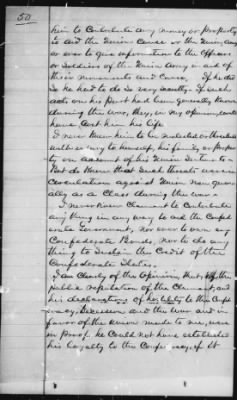 50
him to Contribute any money or property
to aid the Union Cause or the Union Army
or ever to give information to the Officers
or Soldiers of the Union Army in aid of
their movements and Cause, If he did
so he had to do so very secretly. If such
acts on his part had been generally known
during the war, they, in my opinion, would
have Cost him his life
I never knew him to be molested or threatened
with injury to himself, his family or proper-
ty on account of his Union Sentiments
But do know that such threats were in
Circulation against Union men gener-
ally as a Class during the war.
I never knew Claimant to Contribute
any thing in any way to aid the Confed-
erate Government, nor ever to own any
Confederate Bonds, nor to do any
thing to sustain the Credit of the
Confederate States,
I am Clearly of the Opinion, that, by the
public reputation of the Claimant, and
his declarations of hostility to the Confed-
eracy, Secession and the War and in
favor of the Union made to me, were
in proof, he Could not have established
his loyalty to the Confederacy, if it